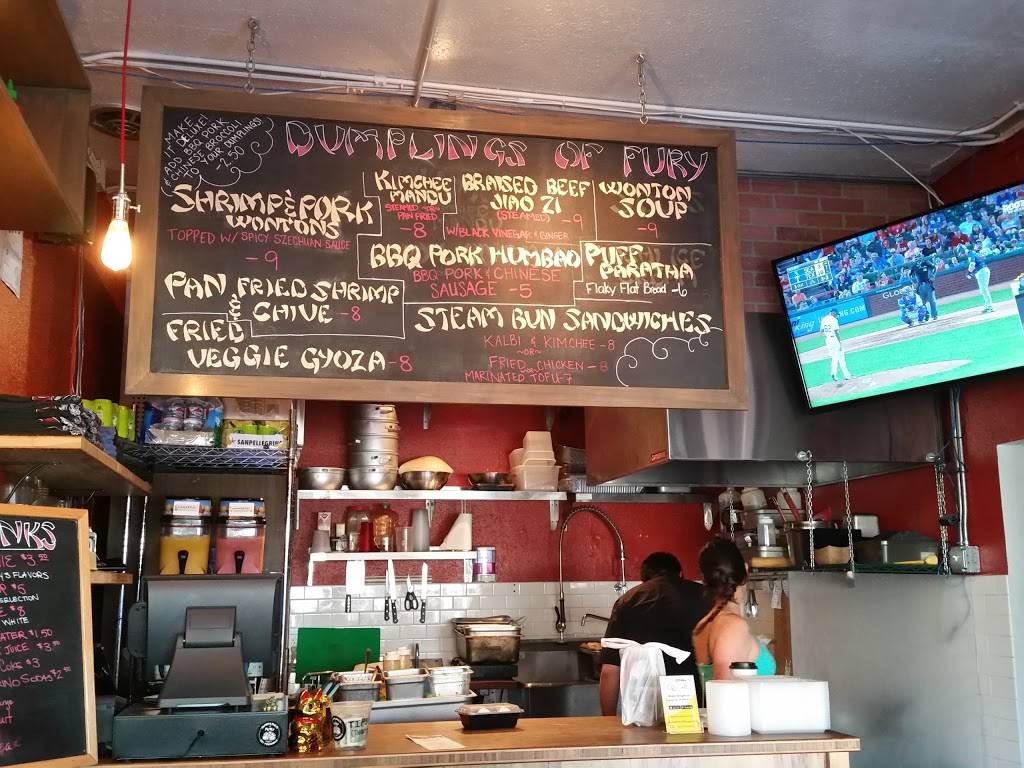 MAKE
IT DELUXE!
ADD BBQ PORK
& CHINESE BROCCOLI
TO YOUR DUMPLINGS!
1.50
DUMPLINGS OF FURY
SHRIMP & PORK
WONTONS
TOPPED W/ SPICY SZECHUAN SAUCE
-9
KIMCHEE
MANDU
STEAMED -OR-
PAN FRIED
-8
BRAISED BEEF
JIAO ZI
(STEAMED) -9
W/BLACK VINEGAR & GINGER
WONTON
SOUP
-9
BBQ PORK HUMBAO
BBQ PORK & CHINESE
SAUSAGE -5
PUFF
PARATHA
Flaky Flat Bread -6
PAN FRIED SHRIMP
& CHIVE -8
FRIED
VEGGIE GYOZA -8
STEAM BUN SANDWICHES
KALBI & KIMCHEE -8
~OR~
FRIED CHICKEN -8
OR
MARINATED TOFU-7
SANPELLEGRINO
NKS
IE $3.50
FLAVORS
R $5
SELECTION
E $8
WHITE
ATER $1.50
JUICE $3.50
COKE $3
INO SODAS $2.50
TIPS